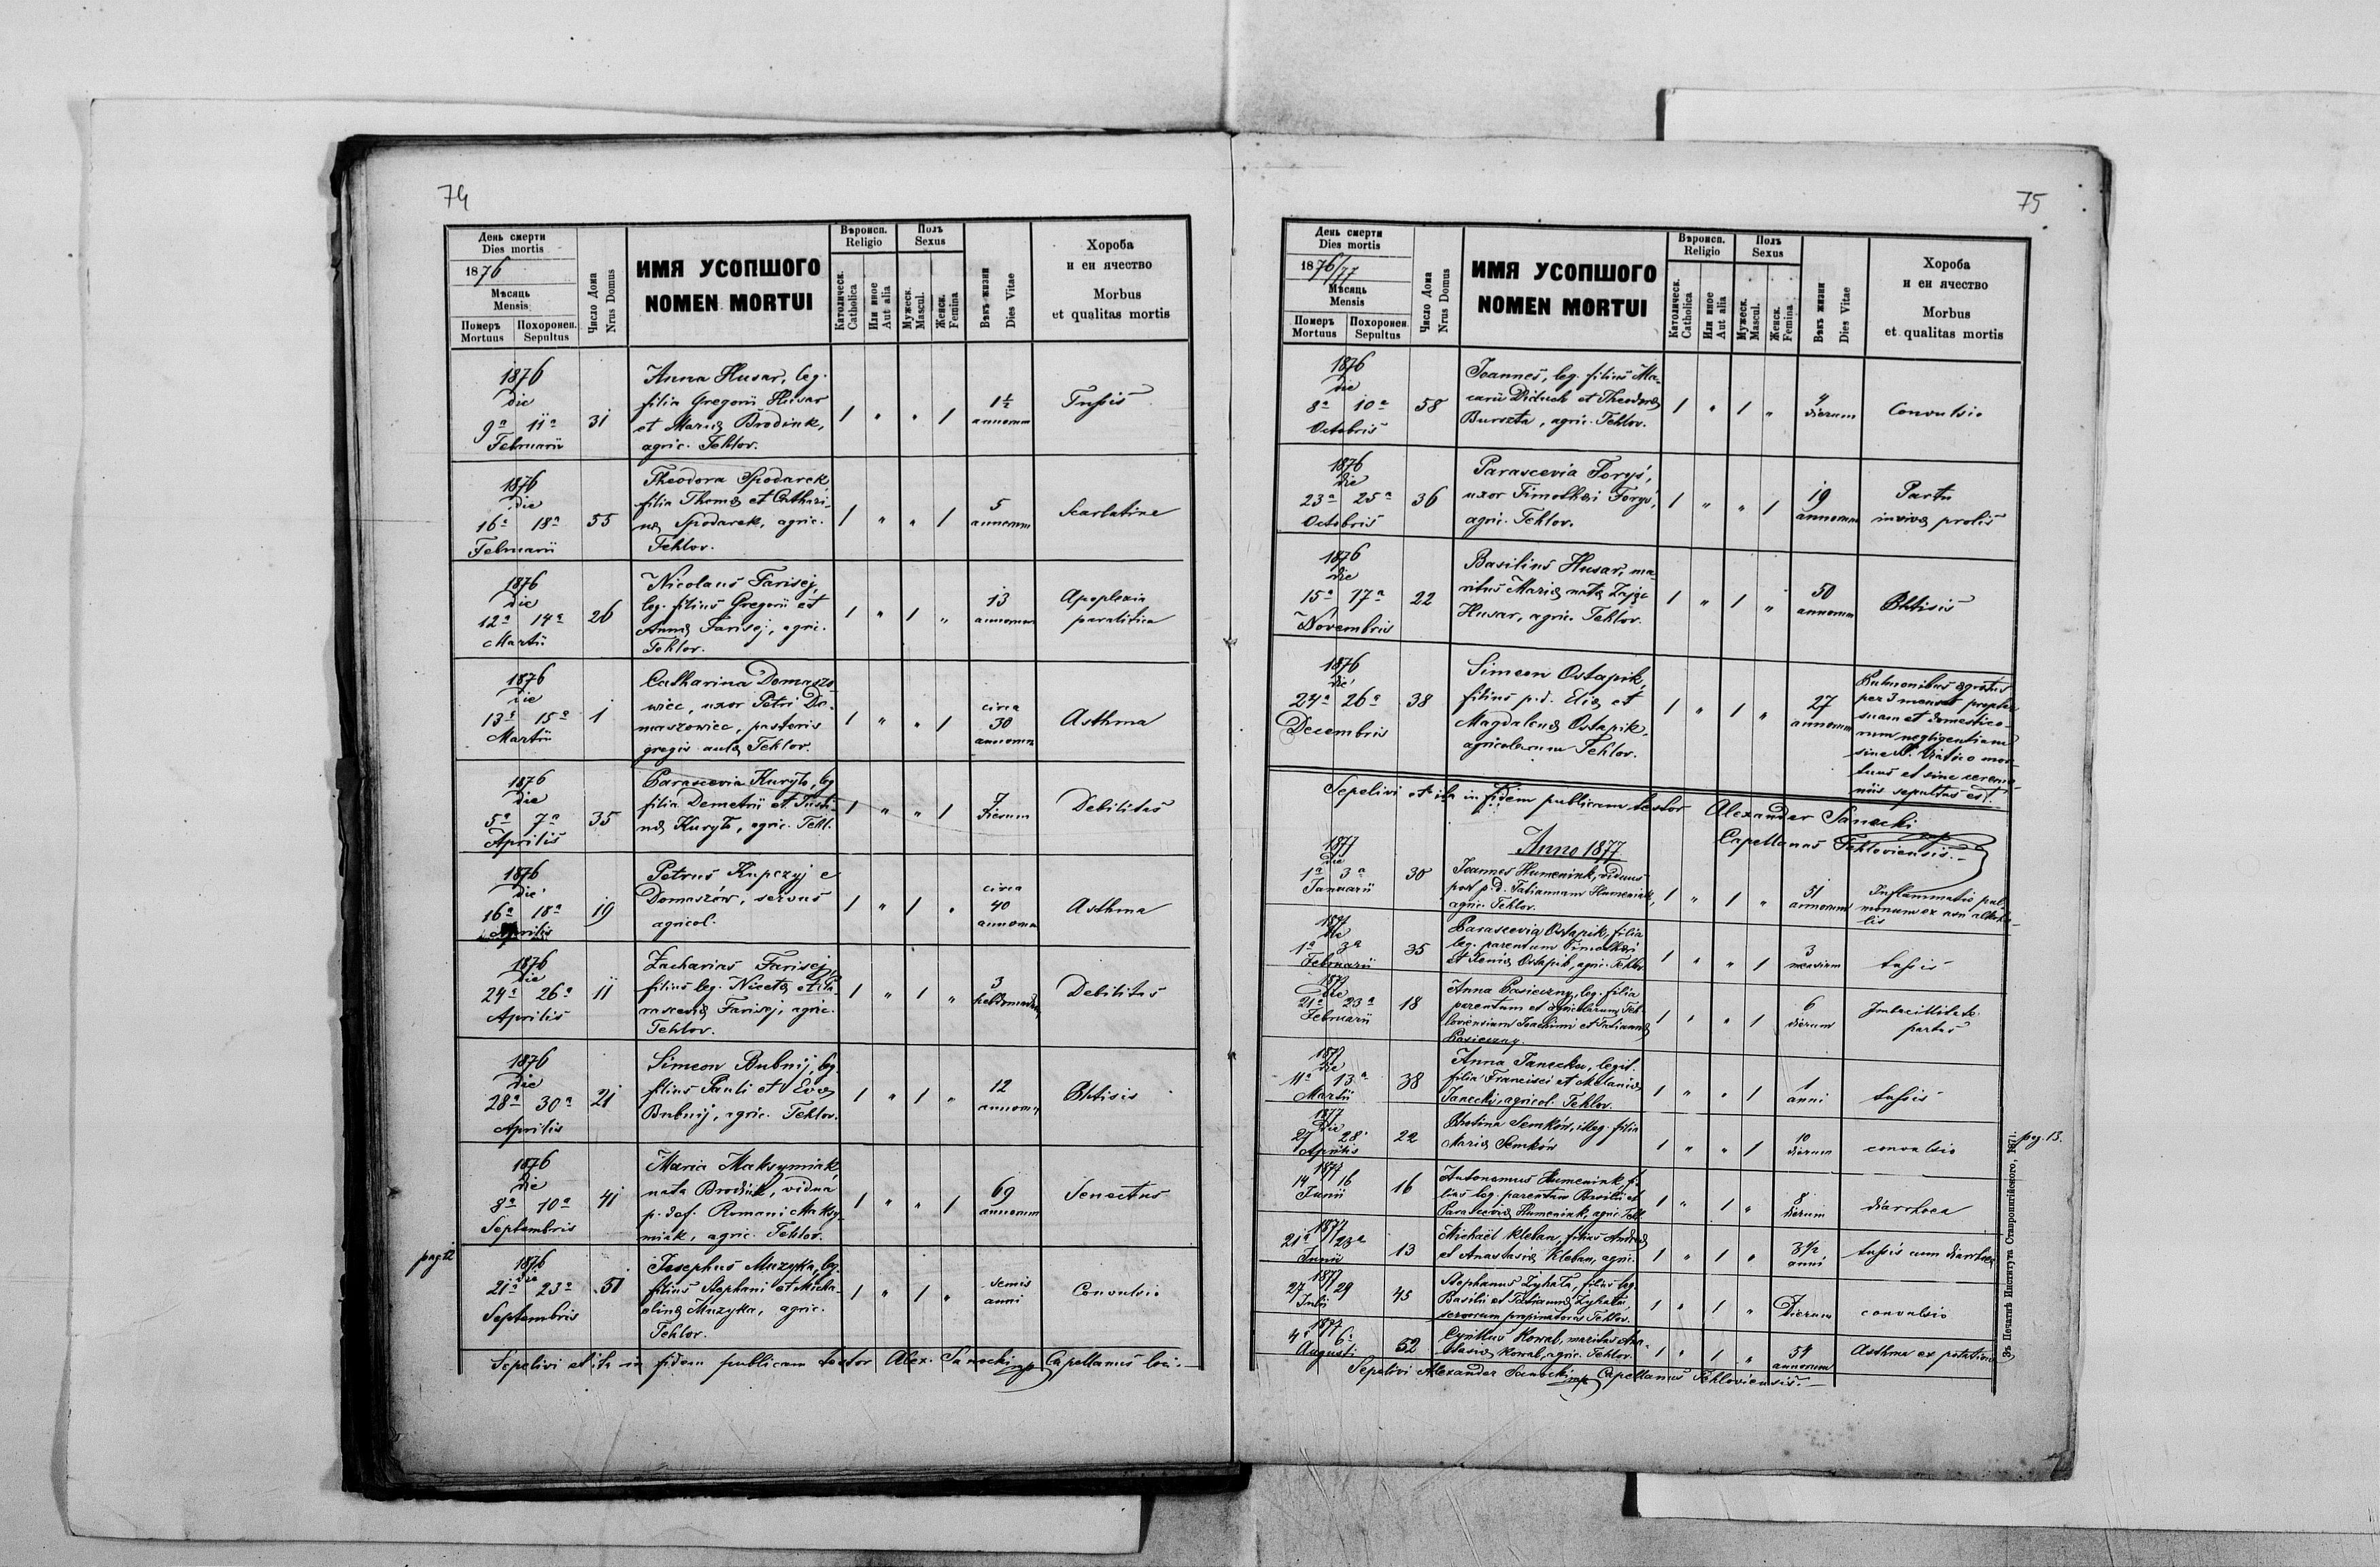 74
День смерти
Dies mortis
1876
Мѣсяць
Mensis
Померъ
Mortuus
Похоронен.
Sepultus
Число Дома
Nrus Domus
ИМЯ УСОПШОГО
NOMEN MORTUI
Вѣроисп.
Religio
Католическ.
Catholica
Или иное
Aut alia
Полъ
Sexus
Мужеск.
Mascul.
Женск.
Femina
Вѣкъ жизни
Dies Vitae
Хороба
и еи ячество
Morbus
et qualitas mortis
1876
die
9ª 11ª
Februarii
31
Anna Husar, leg.
filia Gregorii Husar
et Mariæ Brodink,
agric. Tehlov.
1 " " 1
1½
annorum
Tussis
1876
die
16ª 18ª
Februarii
55
Theodora Spodarek,
filia Thomæ et Cathari-
næ Spodarek, agric.
Tehlov.
1 " " 1
5
annorum
Scarlatine
1876
die
12ª 14ª
Martii
26
Nicolaus Farisej,
leg. filius Gregorii et
Annæ Farisej, agric.
Tehlov.
1 " 1 "
13
annorum
Apoplexia
paralitica
1876
die
13ª 15ª
Martii
1
Catharina Domaszo-
wiec, uxor Petri Do-
maszowiec, pastoris
gregis aulæ Tehlov.
1 " " 1
circa
30
annorum
Asthma
1876
die
5ª 7ª
Aprilis
35
Parascevia Kuryło, leg
filia Demetrii et Justi-
næ Kuryło, agric. Tehl.
1 " " 1
7
dierum
Debilitas
1876
die
16ª 18ª
Aprilis
19
Petrus Kupczyj e
Domaszów, servus
agricol.
1 " 1 "
circa
40
annorum
Asthma
1876
die
24ª 26ª
Aprilis
11
Zacharias Farisej,
filius leg. Nicetæ et Pa-
rasceviæ Farisej, agric.
Tehlov.
1 " 1 "
3
hebdomadum
Debilitas
1876
die
28ª 30ª
Aprilis
21
Simeon Bubnij, leg.
filius Pauli et Evæ
Bubnij, agric. Tehlov.
1 " 1 "
12
annorum
Phtisis
1876
die
8ª 10ª
Septembris
41
Maria Maksymiak,
nata Brodink, vidua
p. def. Romani Maksy-
miak, agric. Tehlov.
1 " " 1
69
annorum
Senectus
pag 12
1876
die
21ª 23ª
Septembris
51
Josephus Muzyka, leg.
filius Stephani et Micha-
elinæ Muzyka, agric.
Tehlov.
1 " 1 "
semis
anni
Convulsio
Sepelivi et ita in fidem publicam testor Alex. Sanocki mp Capellanus loci.
75
День смерти
Dies mortis
1876/77
Мѣсяць
Mensis
Померъ
Mortuus
Похоронен.
Sepultus
Число Дома
Nrus Domus
ИМЯ УСОПШОГО
NOMEN MORTUI
Вѣроисп.
Religio
Католическ.
Catholica
Или иное
Aut alia
Полъ
Sexus
Мужеск.
Mascul.
Женск.
Femina
Вѣкъ жизни
Dies Vitae
Хороба
и еи ячество
Morbus
et qualitas mortis
1876
die
8ª 10ª
Octobris
58
Joannes, leg. filius Ma-
carii Dictuch et Theodoræ
Burszta, agric. Tehlov.
1 " 1 "
4
dierum
Convulsio
1876
die
23ª 25ª
Octobris
36
Parascevia Foryś,
uxor Timothæi Foryś,
agric. Tehlov.
1 " " 1
19
annorum
Partu
invivæ prolis
1876
die
15ª 17ª
Novembris
22
Basilius Husar, ma-
ritus Mariæ nata Zając
Husar, agric. Tehlov.
1 " 1 "
50
annorum
Phtisis
1876
die
24ª 26ª
Decembris
38
Simeon Ostapik,
filius p.d. Eliæ et
Magdalenæ Ostapik,
agricolarum Tehlov.
1 " 1 "
27
annorum
Pulmonibus ægrotus
per 3 menses propter
suam et domestico-
rum negligentiam
sine S. Viatico mor-
tuus et sine ceremo-
niis sepultus est.
Sepelivi et ita in fidem publicam testor Alexander Sanocki mp
Capellanus Tehloviensis.
Anno 1877
1877
die
1ª 3ª
Januarii
30
Joannes Humeniuk, viduus
post p.d. Tatiannam Humeniuk,
agric. Tehlov.
1 " 1 "
51
annorum
Inflammatio pul-
monum ex usu alkoho-
lis
1877
die
1ª 3ª
Februarii
35
Parascevia Ostapik, filia
leg. parentum Timothæi
et Xeniæ Ostapik, agric. Tehlov.
1 " " 1
3
mensium
tussis
1877
die
21ª 23ª
Februarii
18
Anna Pasieczny, leg. filia
parentum et agricolarum Teh-
loviensium Joachimi et Tatiannæ
Pasieczny.
1 " " 1
6
dierum
Imbecillitate
partus
1877
die
11ª 13ª
Martii
38
Anna Janecka, legit.
filia Francisci et Melaniæ
Janecki, agricol. Tehlov.
1 " " 1
1
anni
tussis
1877
die
27 28
Aprilis
22
Photina Semków, illeg. filia
Mariæ Semków
1 " " 1
10
dierum
convulsio
pag. 13.
1877
14 16
Junii
16
Autonomus Humeniuk, fi-
lius leg. parentum Basilii et
Parasceviæ Humeniuk, agric. Tehl.
1 " 1 "
8
dierum
diarrhoea
1877
21ª 23ª
Junii
13
Michaël Kleban, filius Andreæ
et Anastasiæ Kleban, agric.
1 " 1 "
3½
anni
tussis cum diarrhoea
1877
27 29
Julii
45
Stephanus Zyhała, filius leg.
Basilii et Tatiannæ Zyhała,
servorum propinatoris Tehlov.
1 " 1 "
7
dierum
convulsio
1877
4ª 6ª
Augusti
52
Cyrillus Kowal, maritus Ana-
stasiæ Kowal, agric. Tehlov.
1 " 1 "
54
annorum
Asthma ex potatione
Sepelivi Alexander Sanocki mp Capellanus Tehloviensis.
Зъ Печатнѣ Института Ставропигійского, 1871.